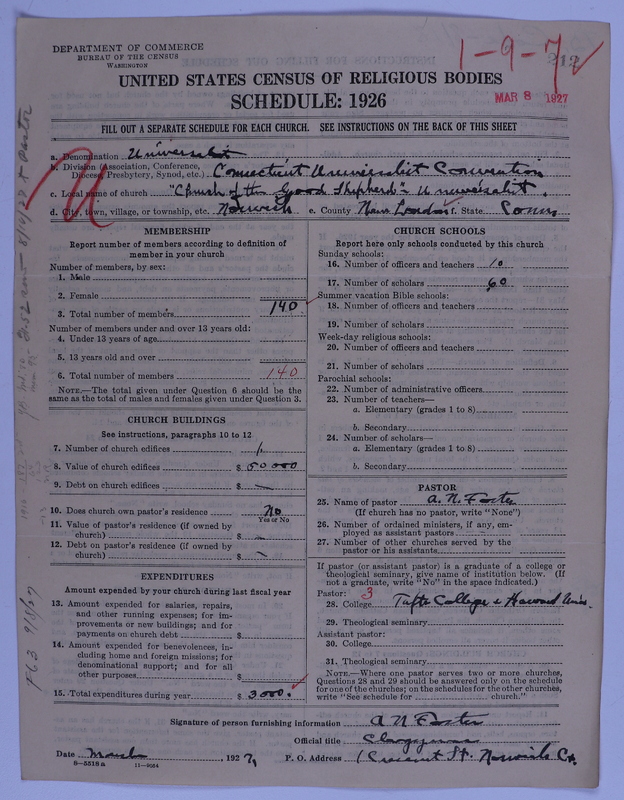 DEPARTMENT OF COMMERCE
BUREAU OF THE CENSUS
WASHINGTON
1-9-7
212
UNITED STATES CENSUS OF RELIGIOUS BODIES
SCHEDULE: 1926
MAR 8 1927
FILL OUT A SEPARATE SCHEDULE FOR EACH CHURCH. SEE INSTRUCTIONS ON THE BACK OF THIS SHEET
a. Denomination Universalist
b. Division (Association, Conference, Diocese, Presbytery, Synod, etc.) Connecticut Universalist Convention
c. Local name of church "Church of the Good Shepherd" Universalist.
d. City, town, village, or township, etc. Norwich e. County New London f. State Conn
MEMBERSHIP
Report number of members according to definition of
member in your church
Number of members, by sex:
1. Male
2. Female
3. Total number of members 140
Number of members under and over 13 years old:
4. Under 13 years of age
5. 13 years old and over
6. Total number of members 140
NOTE.—The total given under Question 6 should be
same as the total of males and females given under Question 3.
CHURCH BUILDINGS
See instructions, paragraphs 10 to 12
7. Number of church edifices 1
8. Value of church edifices $ 50000
9. Debt on church edifices $ —
10. Does church own pastor's residence No
Yes or No
11. Value of pastor's residence (if owned by
church) $
12. Debt on pastor's residence (if owned by
church) $
EXPENDITURES
Amount expended by your church during last fiscal year
13. Amount expended for salaries, repairs,
and other running expenses; for im-
provements or new buildings; and for
payments on church debt $
14. Amount expended for benevolences, in-
cluding home and foreign missions; for
denominational support; and for all
other purposes $
15. Total expenditures during year $ 3000.
CHURCH SCHOOLS
Report here only schools conducted by this church
Sunday schools:
16. Number of officers and teachers 10
17. Number of scholars 60
Summer vacation Bible schools:
18. Number of officers and teachers
19. Number of scholars
Week-day religious schools:
20. Number of officers and teachers
21. Number of scholars
Parochial schools:
22. Number of administrative officers
23. Number of teachers—
a. Elementary (grades 1 to 8)
b. Secondary
24. Number of scholars—
a. Elementary (grades 1 to 8)
b. Secondary
PASTOR
25. Name of pastor A. N. Foster
(If church has no pastor, write "None")
26. Number of ordained ministers, if any, em-
ployed as assistant pastors
27. Number of other churches served by the
pastor or his assistants
If pastor (or assistant pastor) is a graduate of a college or
theological seminary, give name of institution below. (If
not a graduate, write "No" in the space indicated.)
Pastor: 3
28. College Tufts College & Harvard
29. Theological seminary
Assistant pastor:
30. College
31. Theological seminary
NOTE.—Where one pastor serves two or more churches,
Questions 28 and 29 should be answered only on the schedule
for one of the churches; on the schedules for the other churches,
write "See schedule for church."
Signature of person furnishing information A N Foster
Official title Clergyman
Date March, 1927, P. O. Address 1 Crescent St. Norwich Ct.
8-5518a 11-9054